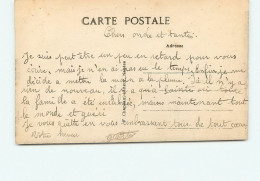 CARTE POSTALE
Chers oncle et tante
Adresse
Je suis peut être un peu en retard pour vous
écrire, mais je n'en ai pas eu le temps. Enfin je me
décide a mettre la main a la plume. Il n'y a
rien de nouveau, il y a que
la famille a été enrhumée, mais maintenant tout
le monde et guéri
Je vous quitte en vous embrassant tous de tout cœur
Votre neveu